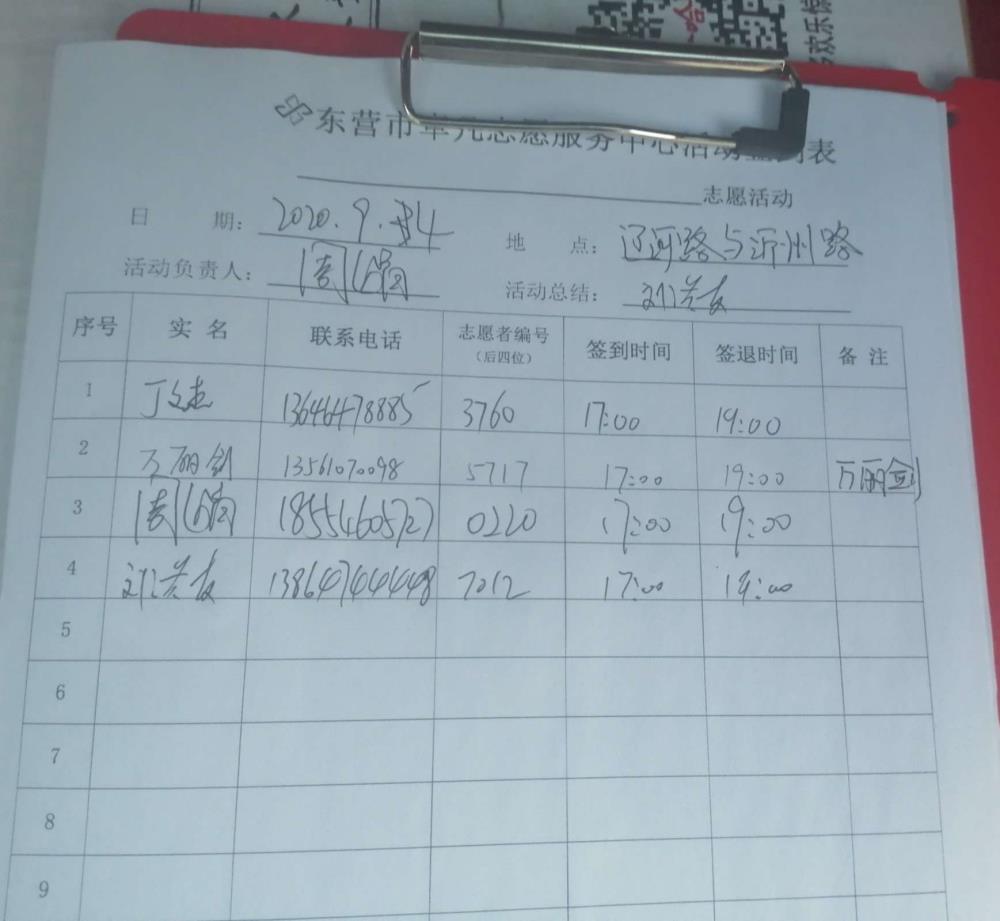 欢乐
东营市 志愿服务中心活动 表
志愿活动
日 期: 2020.9. 4 地 点: 辽河路与沂州路
活动负责人: 周 活动总结: 刘兰友
序号 实 名 联系电话 志愿者编号 (后四位) 签到时间 签退时间 备 注
1 丁文杰 13646478885 3760 17:00 19:00
2 万丽剑 13561070098 5717 17:00 19:00 万丽剑
3 周 18554605727 0220 17:00 19:00
4 刘兰友 13864744448 7012 17:00 19:00
5
6
7
8
9